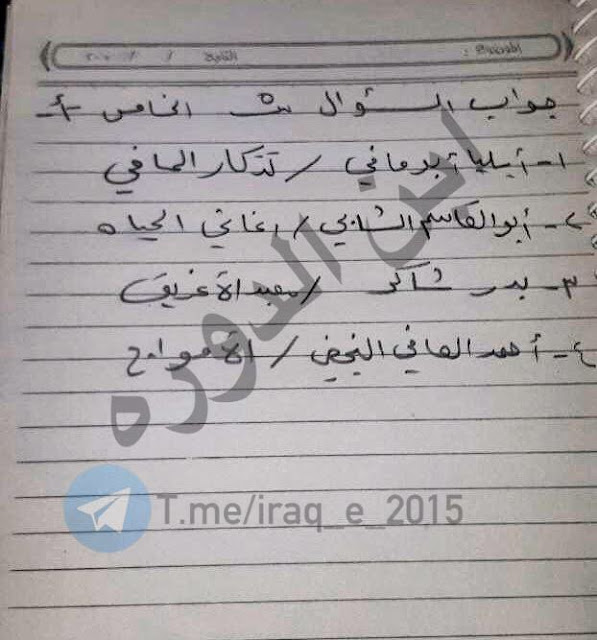 الموضوع : التاريخ / / ٢٠٠
جواب السؤال الخامس -أ-
١- أيليا أبو ماضي / تذكار الماضي
٢- أبو القاسم الشابي / اغاني الحياه
٣- بدر شاكر / معبد الاغريق
٤- أحمد الصافي النجفي / الأمواج
ابن الدوره
T.me/iraq_e_2015